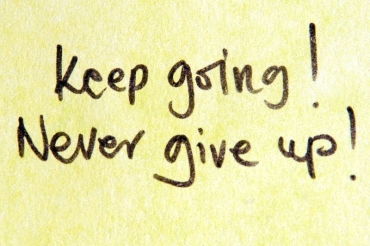 Keep going!
Never give up!